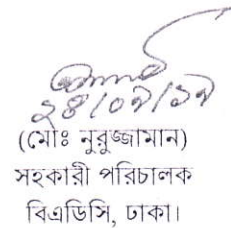 ২৪/০৯/১৯
(মোঃ নুরুজ্জামান)
সহকারী পরিচালক
বিএডিসি, ঢাকা।